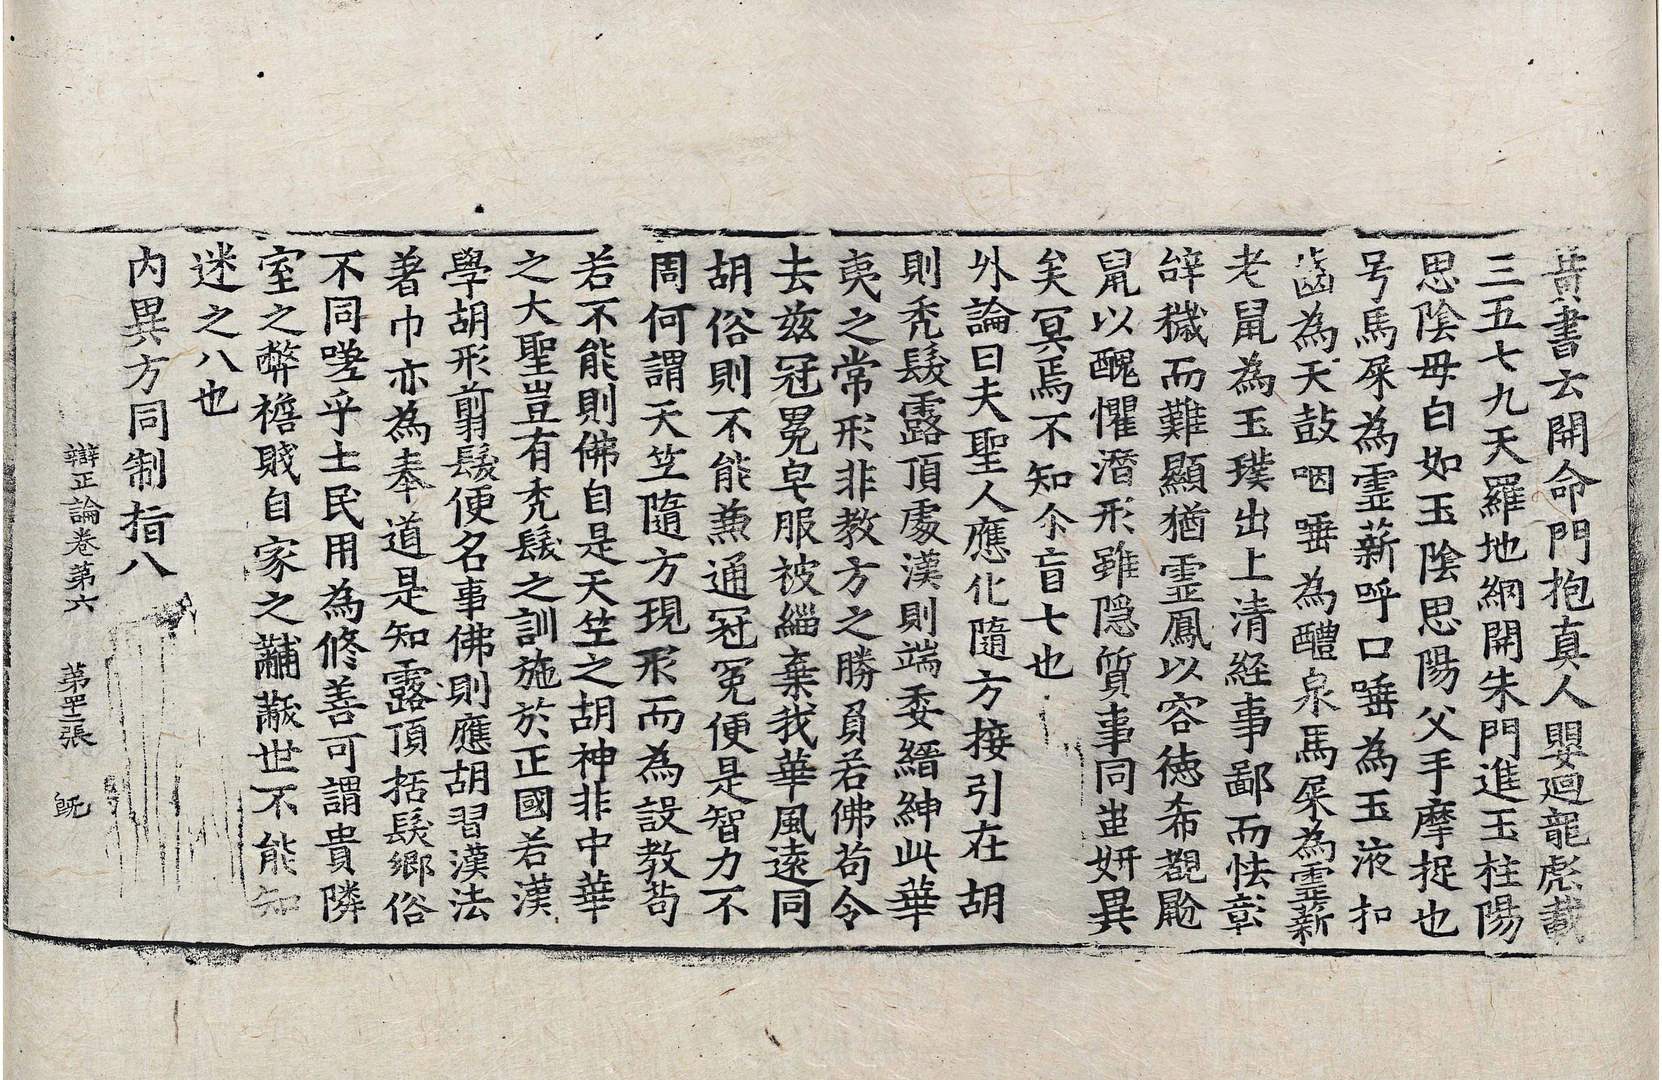 黃書云開命門抱真人嬰迴龍彪載
三五七九天羅地網開朱門進玉柱陽
思陰毋白如玉陰思陽父手摩捉也
号馬屎為霊薪呼口唾為玉液扣
齒為天鼓咽唾為醴泉馬屎為霊薪
老鼠為玉璞出上清経事鄙而怯彰
辝穢而難顯猶霊鳳以容徳希覩鼯
鼠以醜懼潛形雖隠質事同蚩妍異
矣冥焉不知尒盲七也
外論曰夫聖人應化隨方接引在胡
則禿髮露頂處漢則端委縉紳此華
夷之常形非教方之勝負若佛苟令
去兹冠冕皁服被緇棄我華風遠同
胡俗則不能兼通冠冕便是智力不
周何謂天竺隨方現形而為設教苟
若不能則佛自是天竺之胡神非中華
之大聖豈有禿髮之訓施於正國若漢
學胡形剪髮便名事佛則應胡習漢法
著巾亦為奉道是知露頂括髮鄉俗
不同嗟乎士民用為修善可謂貴隣
室之弊襜賤自家之黼黻世不能知
迷之八也
内異方同制指八
辯正論卷第六 第罒三張 旣